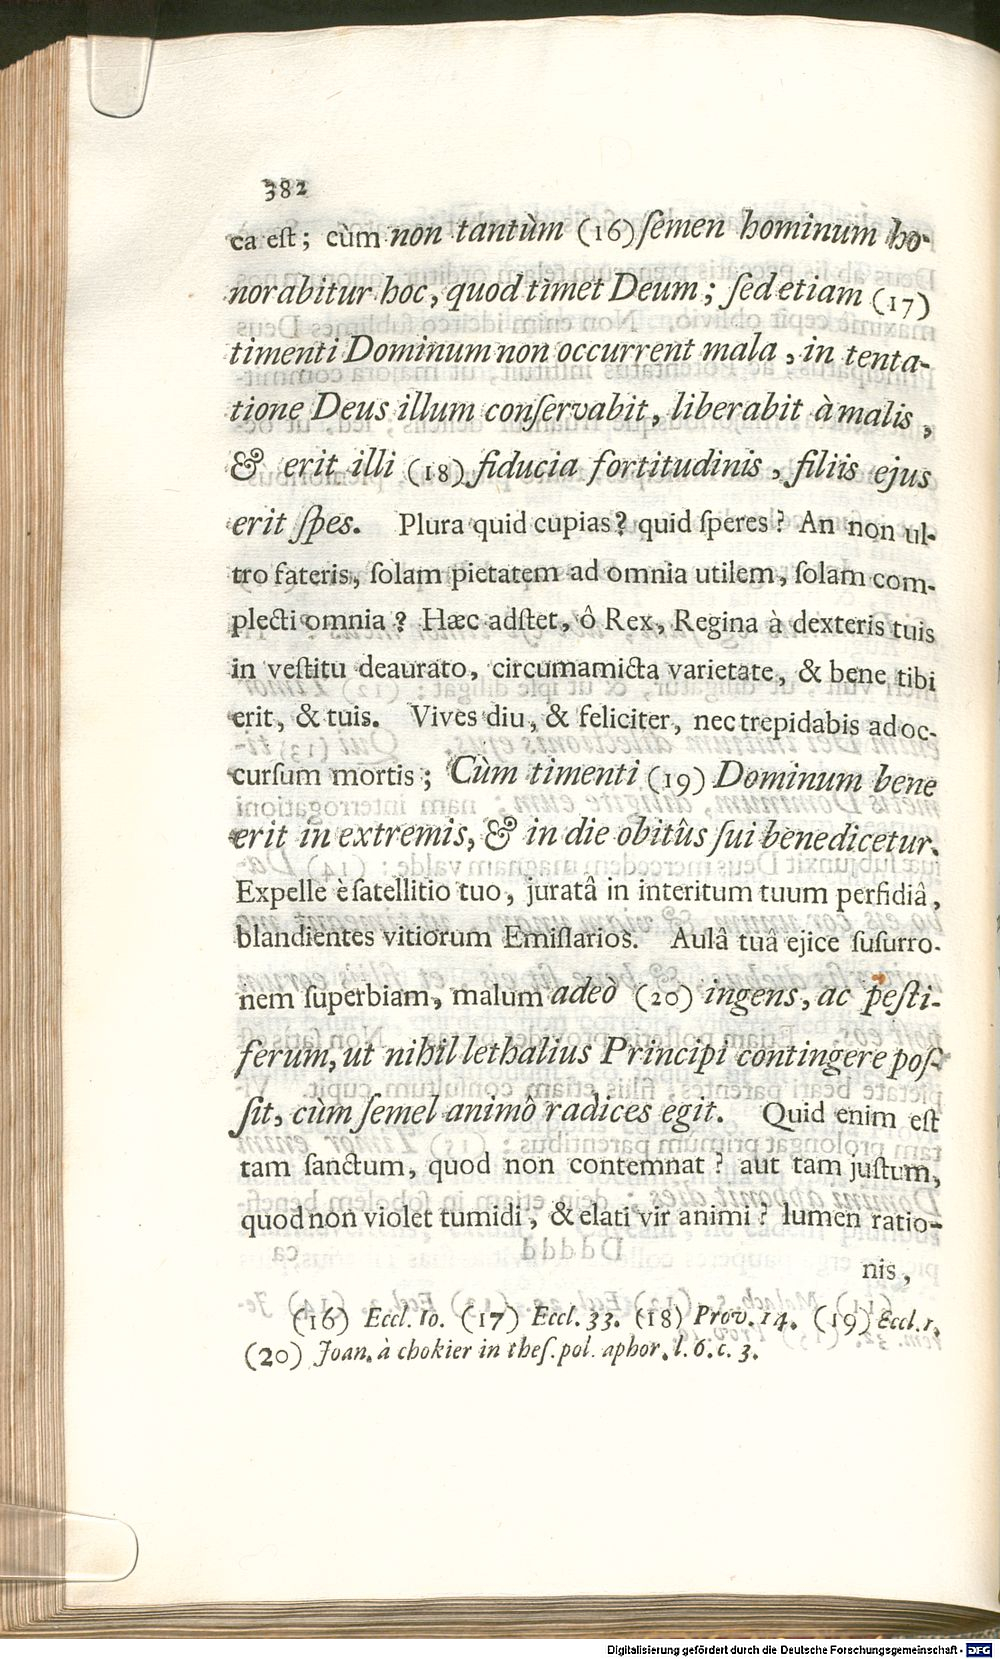 382
ca est; cùm non tantùm (16) ſemen hominum ho-
norabitur hoc, quod timet Deum; ſed etiam (17)
timenti Dominum non occurrent mala, in tenta-
tione Deus illum conſervabit, liberabit à malis,
& erit illi (18) fiducia fortitudinis, filiis ejus
erit ſpes. Plura quid cupias? quid ſperes? An non ul-
tro fateris, ſolam pietatem ad omnia utilem, ſolam com-
plecti omnia? Hæc adſtet, ô Rex, Regina à dexteris tuis
in veſtitu deaurato, circumamicta varietate, & bene tibi
erit, & tuis. Vives diu, & feliciter, nec trepidabis ad oc-
curſum mortis; Cùm timenti (19) Dominum bene
erit in extremis, & in die obitûs ſui benedicetur.
Expelle è ſatellitio tuo, juratâ in interitum tuum perfidiâ,
blandientes vitiorum Emiſſarios. Aulâ tuâ ejice ſuſurro-
nem ſuperbiam, malum adeò (20) ingens, ac peſti-
ferum, ut nihil lethalius Principi contingere poſ-
ſit, cùm ſemel animô radices egit. Quid enim eſt
tam ſanctum, quod non contemnat? aut tam juſtum,
quod non violet tumidi, & elati vir animi? lumen ratio-
nis,
(16) Eccl. 10. (17) Eccl. 33. (18) Prov. 14. (19) Eccl. 1.
(20) Joan. à chokier in theſ. pol. aphor. l. 6. c. 3.
Digitalisierung gefördert durch die Deutsche Forschungsgemeinschaft - DFG